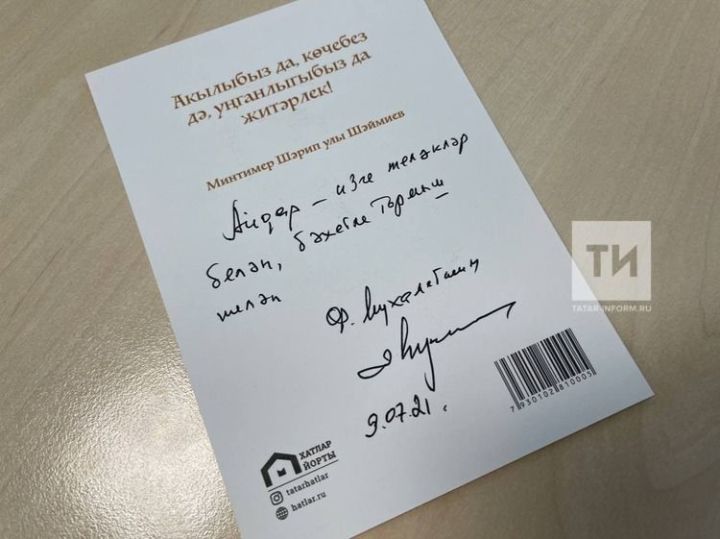 Акылыбыз да, көчебез
дә, уңганлыгыбыз да
җитәрлек!
Минтимер Шәрип улы Шәймиев
Айдар – изге теләкләр
белән, бәхетле тормыш
телән
Ф. Мухаметшин
9.07.21
ТИ
TATAR-INFORM.RU
7930102810005
ХАТЛАР
ЙОРТЫ
tatarhatlar
hatlar.ru